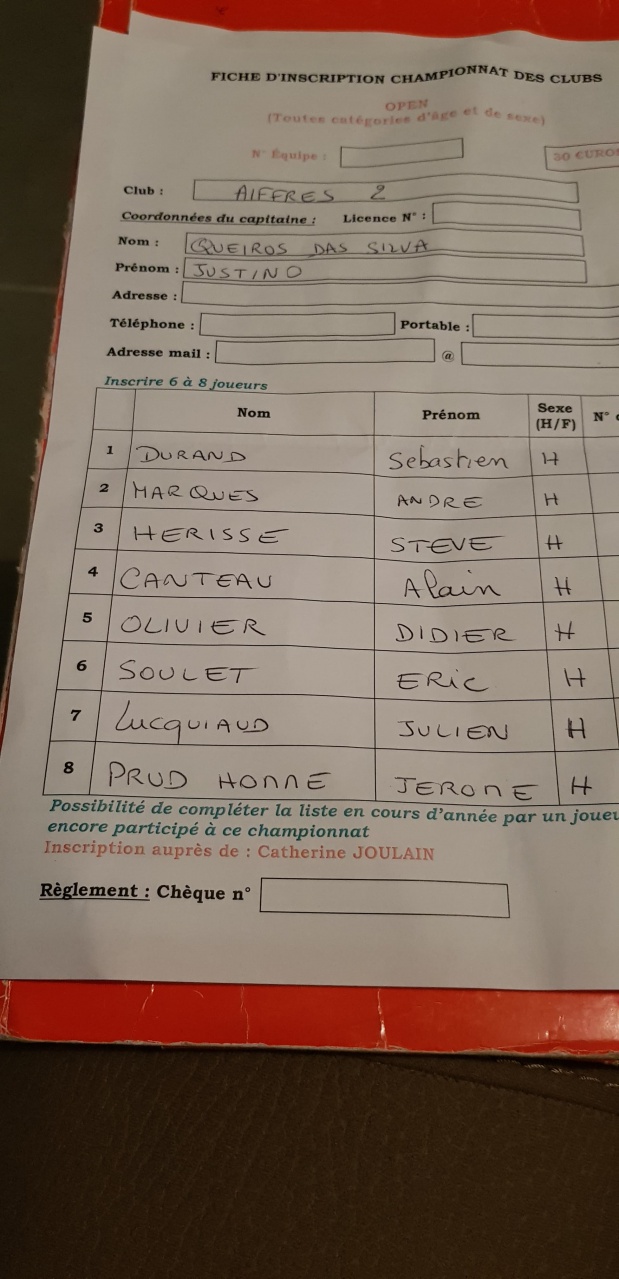 FICHE D'INSCRIPTION CHAMPIONNAT DES CLUBS
OPEN
(Toutes catégories d'âge et de sexe)
N° Équipe :
30 EUROS
Club : AIFFRES 2
Coordonnées du capitaine : Licence N° :
Nom : QUEIROS DAS SILVA
Prénom : JUSTINO
Adresse :
Téléphone : Portable :
Adresse mail : @
Inscrire 6 à 8 joueurs
Nom Prénom Sexe (H/F) N°
1 DURAND Sebastien H
2 MARQUES ANDRE H
3 HERISSE STEVE H
4 CANTEAU Alain H
5 OLIVIER DIDIER H
6 SOULET ERiC H
7 LucquiAUD JULIEN H
8 PRUD HOMME JEROME H
Possibilité de compléter la liste en cours d'année par un joueu
encore participé à ce championnat
Inscription auprès de : Catherine JOULAIN
Règlement : Chèque n°